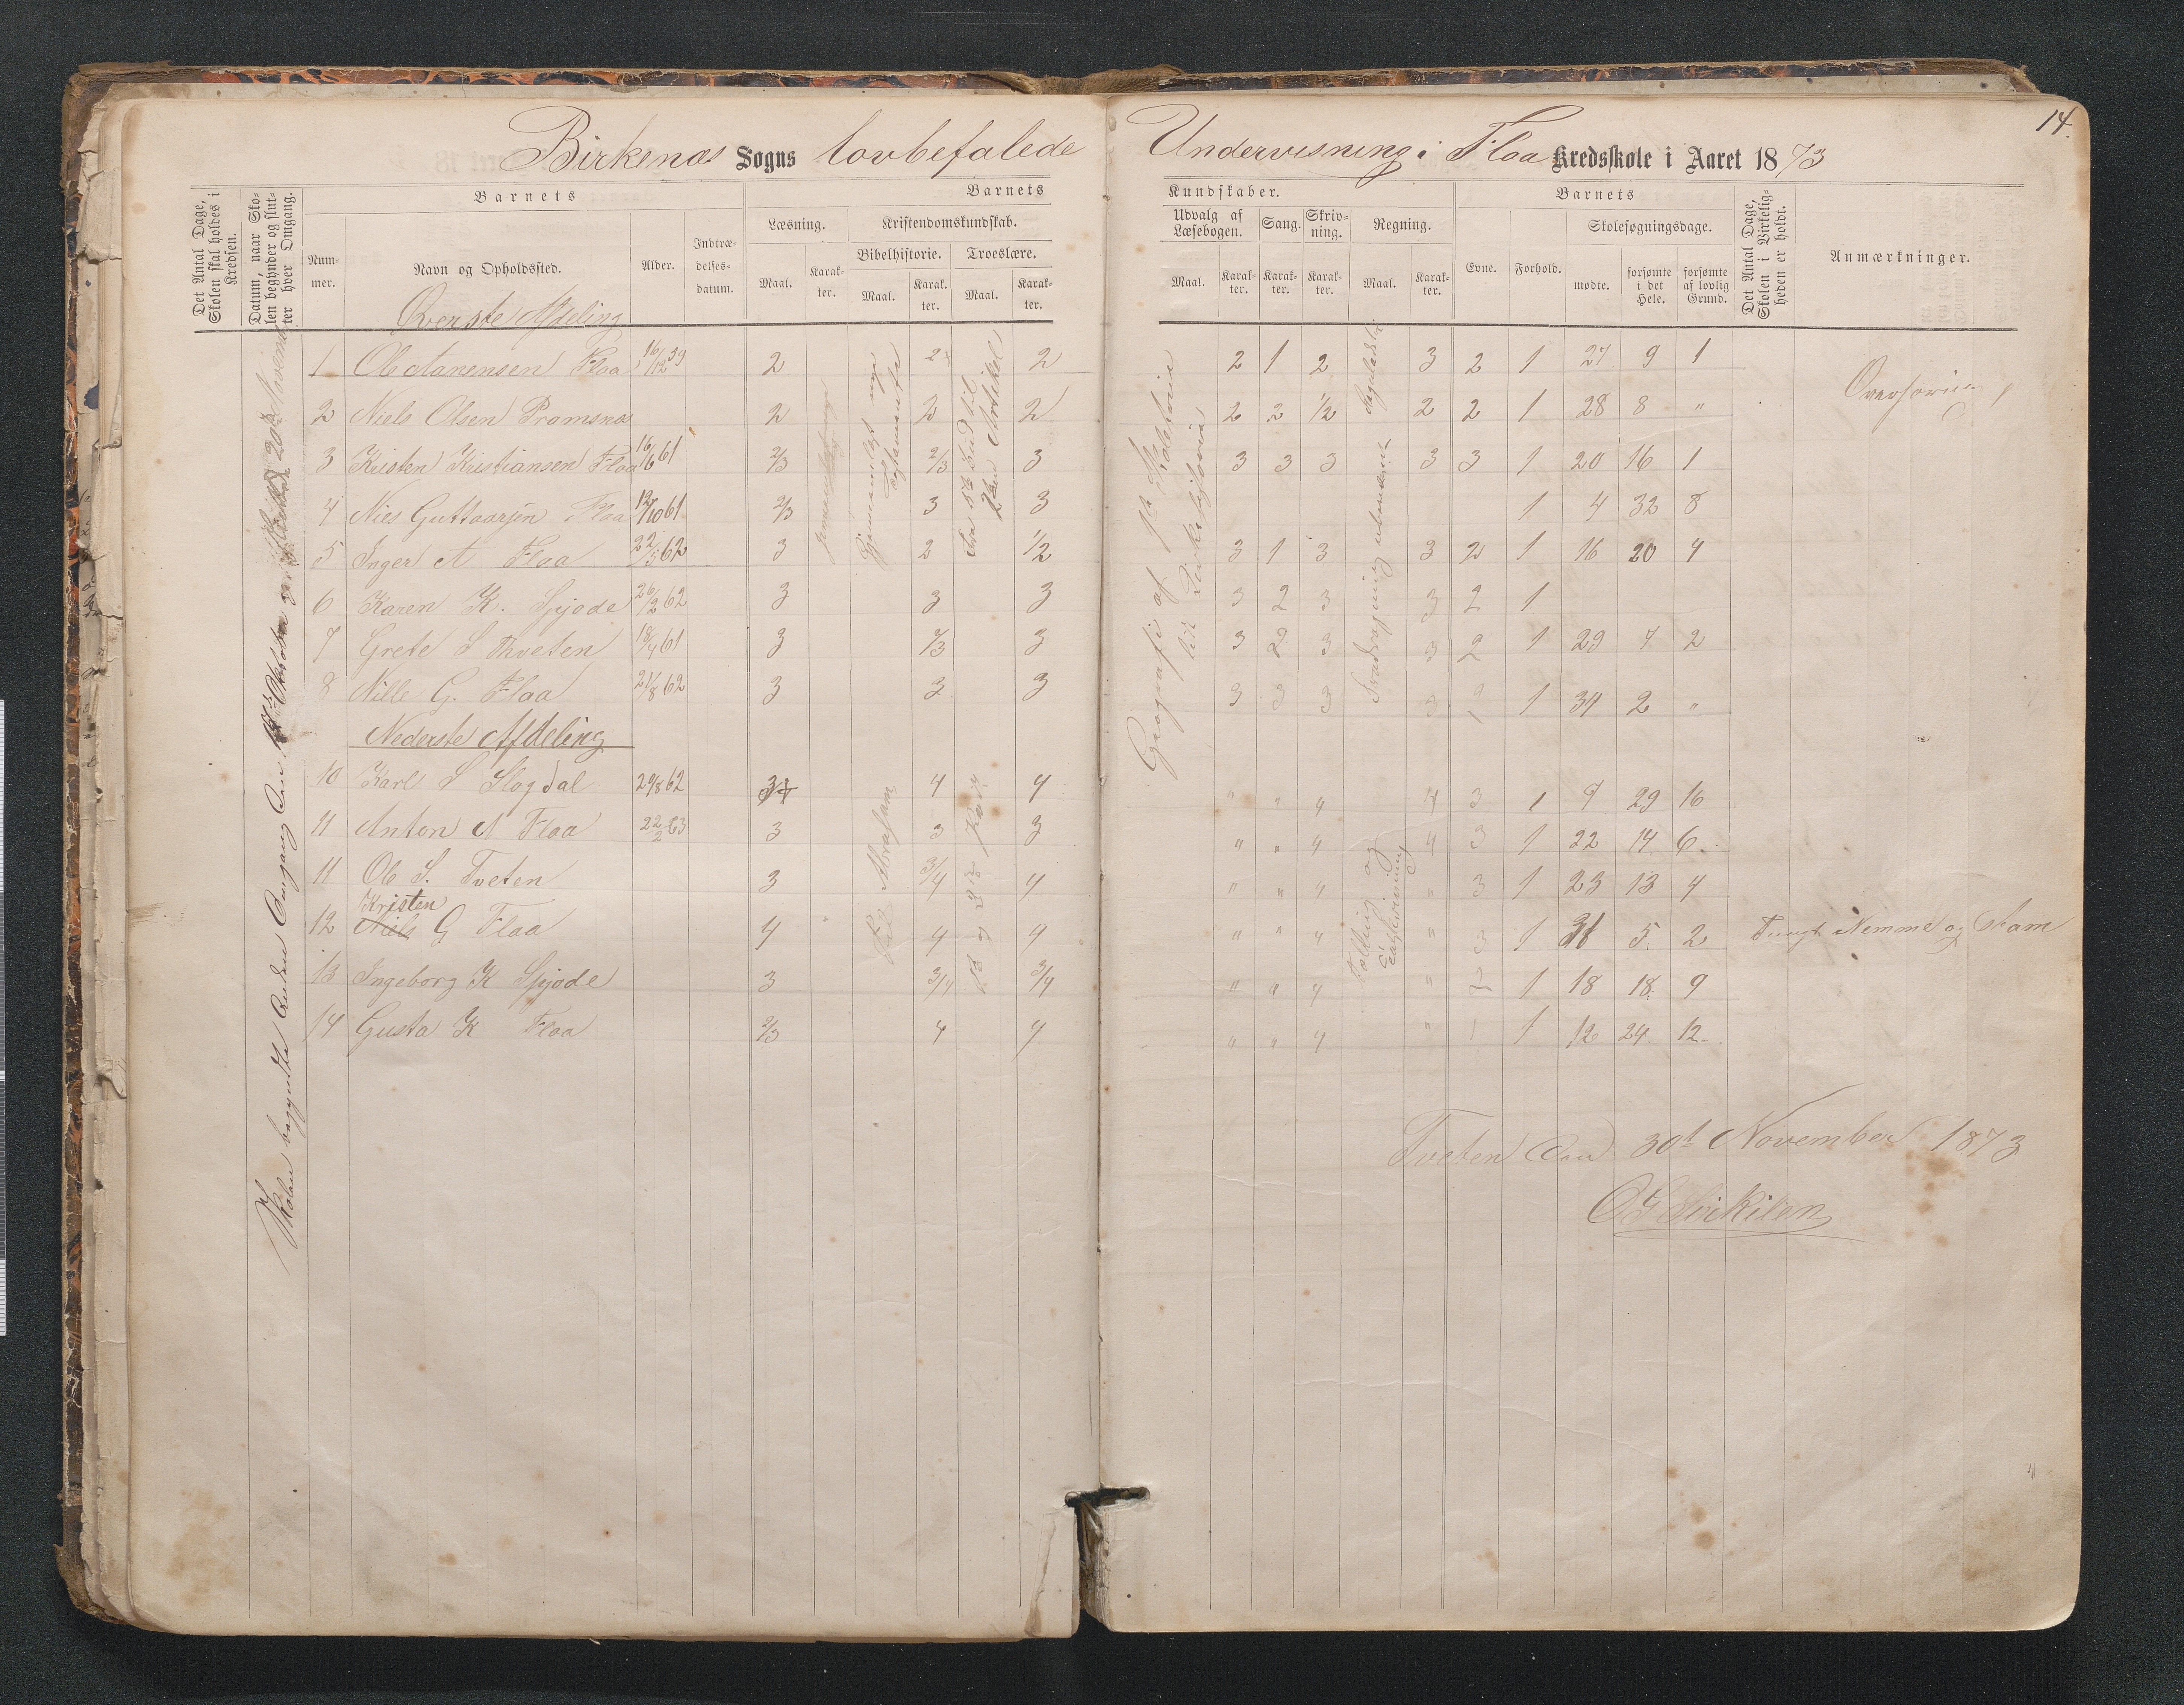 14.
Birkenæs Sogns lovbefalede Undervisning i Flaa Kredsskole i Aaret 1873
Det Antal Dage, Skolen skal holdes i Kredsen.
Datum, naar Skolen begynder og slutter hver Omgang.
Barnets
Nummer.
Navn og Opholdssted.
Alder.
Indtrædelsesdatum.
Barnets
Læsning.
Maal.
Karakter.
Kristendomskundskab.
Bibelhistorie.
Maal.
Karakter.
Troeslære.
Maal.
Karakter.
Kundskaber.
Udvalg af Læsebogen.
Maal.
Karakter.
Sang.
Karakter.
Skrivning.
Karakter.
Regning.
Maal.
Karakter.
Barnets
Evne.
Forhold.
Skolesøgningsdage.
mødte.
forsømte i det Hele.
forsømte af lovlig Grund.
Det Antal Dage, Skolen i Virkeligheden er holdt.
Anmærkninger.
Øverste Afdeling
1 Ole Aanensen Flaa 16/12 59 2 2 2 2 1 2 3 2 1 27 9 1
2 Niels Olsen Pramsnæs 2 2 2 2 2 1/2 2 2 1 28 8 "
3 Kristen Kristiansen Flaa 16/6 61 2/3 2/3 3 3 3 3 3 3 1 20 16 1
4 Nies Guttormsen Flaa 12/10 61 2/3 3 3 1 4 32 8
5 Inger A Flaa 22/5 62 3 2 1/2 3 1 3 3 2 1 16 20 4
6 Karen K. Spjode 26/2 62 3 3 3 3 2 3 3 2 1
7 Grete S Tveten 18/4 61 3 2/3 3 3 2 3 3 2 1 29 7 2
8 Nille G. Flaa 21/8 62 3 3 3 3 3 3 3 2 1 34 2 "
Nederste Afdeling
10 Karl S Slogdal 29/8 62 4 4 " " 4 4 3 1 7 29 16
11 Anton A Flaa 22/2 63 3 3 3 " " 4 4 3 1 22 14 6
11 Ole S. Tveten 3 3/4 4 " " 4 " 3 1 23 13 4
Kristen
12 Niels G Flaa 4 4 4 " " 4 " 3 1 31 5 2 Tungt Nemme og
13 Ingeborg K Spjode 3 3/4 3/4 " " 4 " 2 1 18 18 9
14 Gusta K Flaa 2/3 4 4 " " 4 " 1 1 12 24 12
Skolen begyndte anden Omgang den Oktober og 20de November
Gjennemlæst nye Testamente
Fra 5te Bud til 2den Artikel
Geografi af
Tveten den 30t November 1873